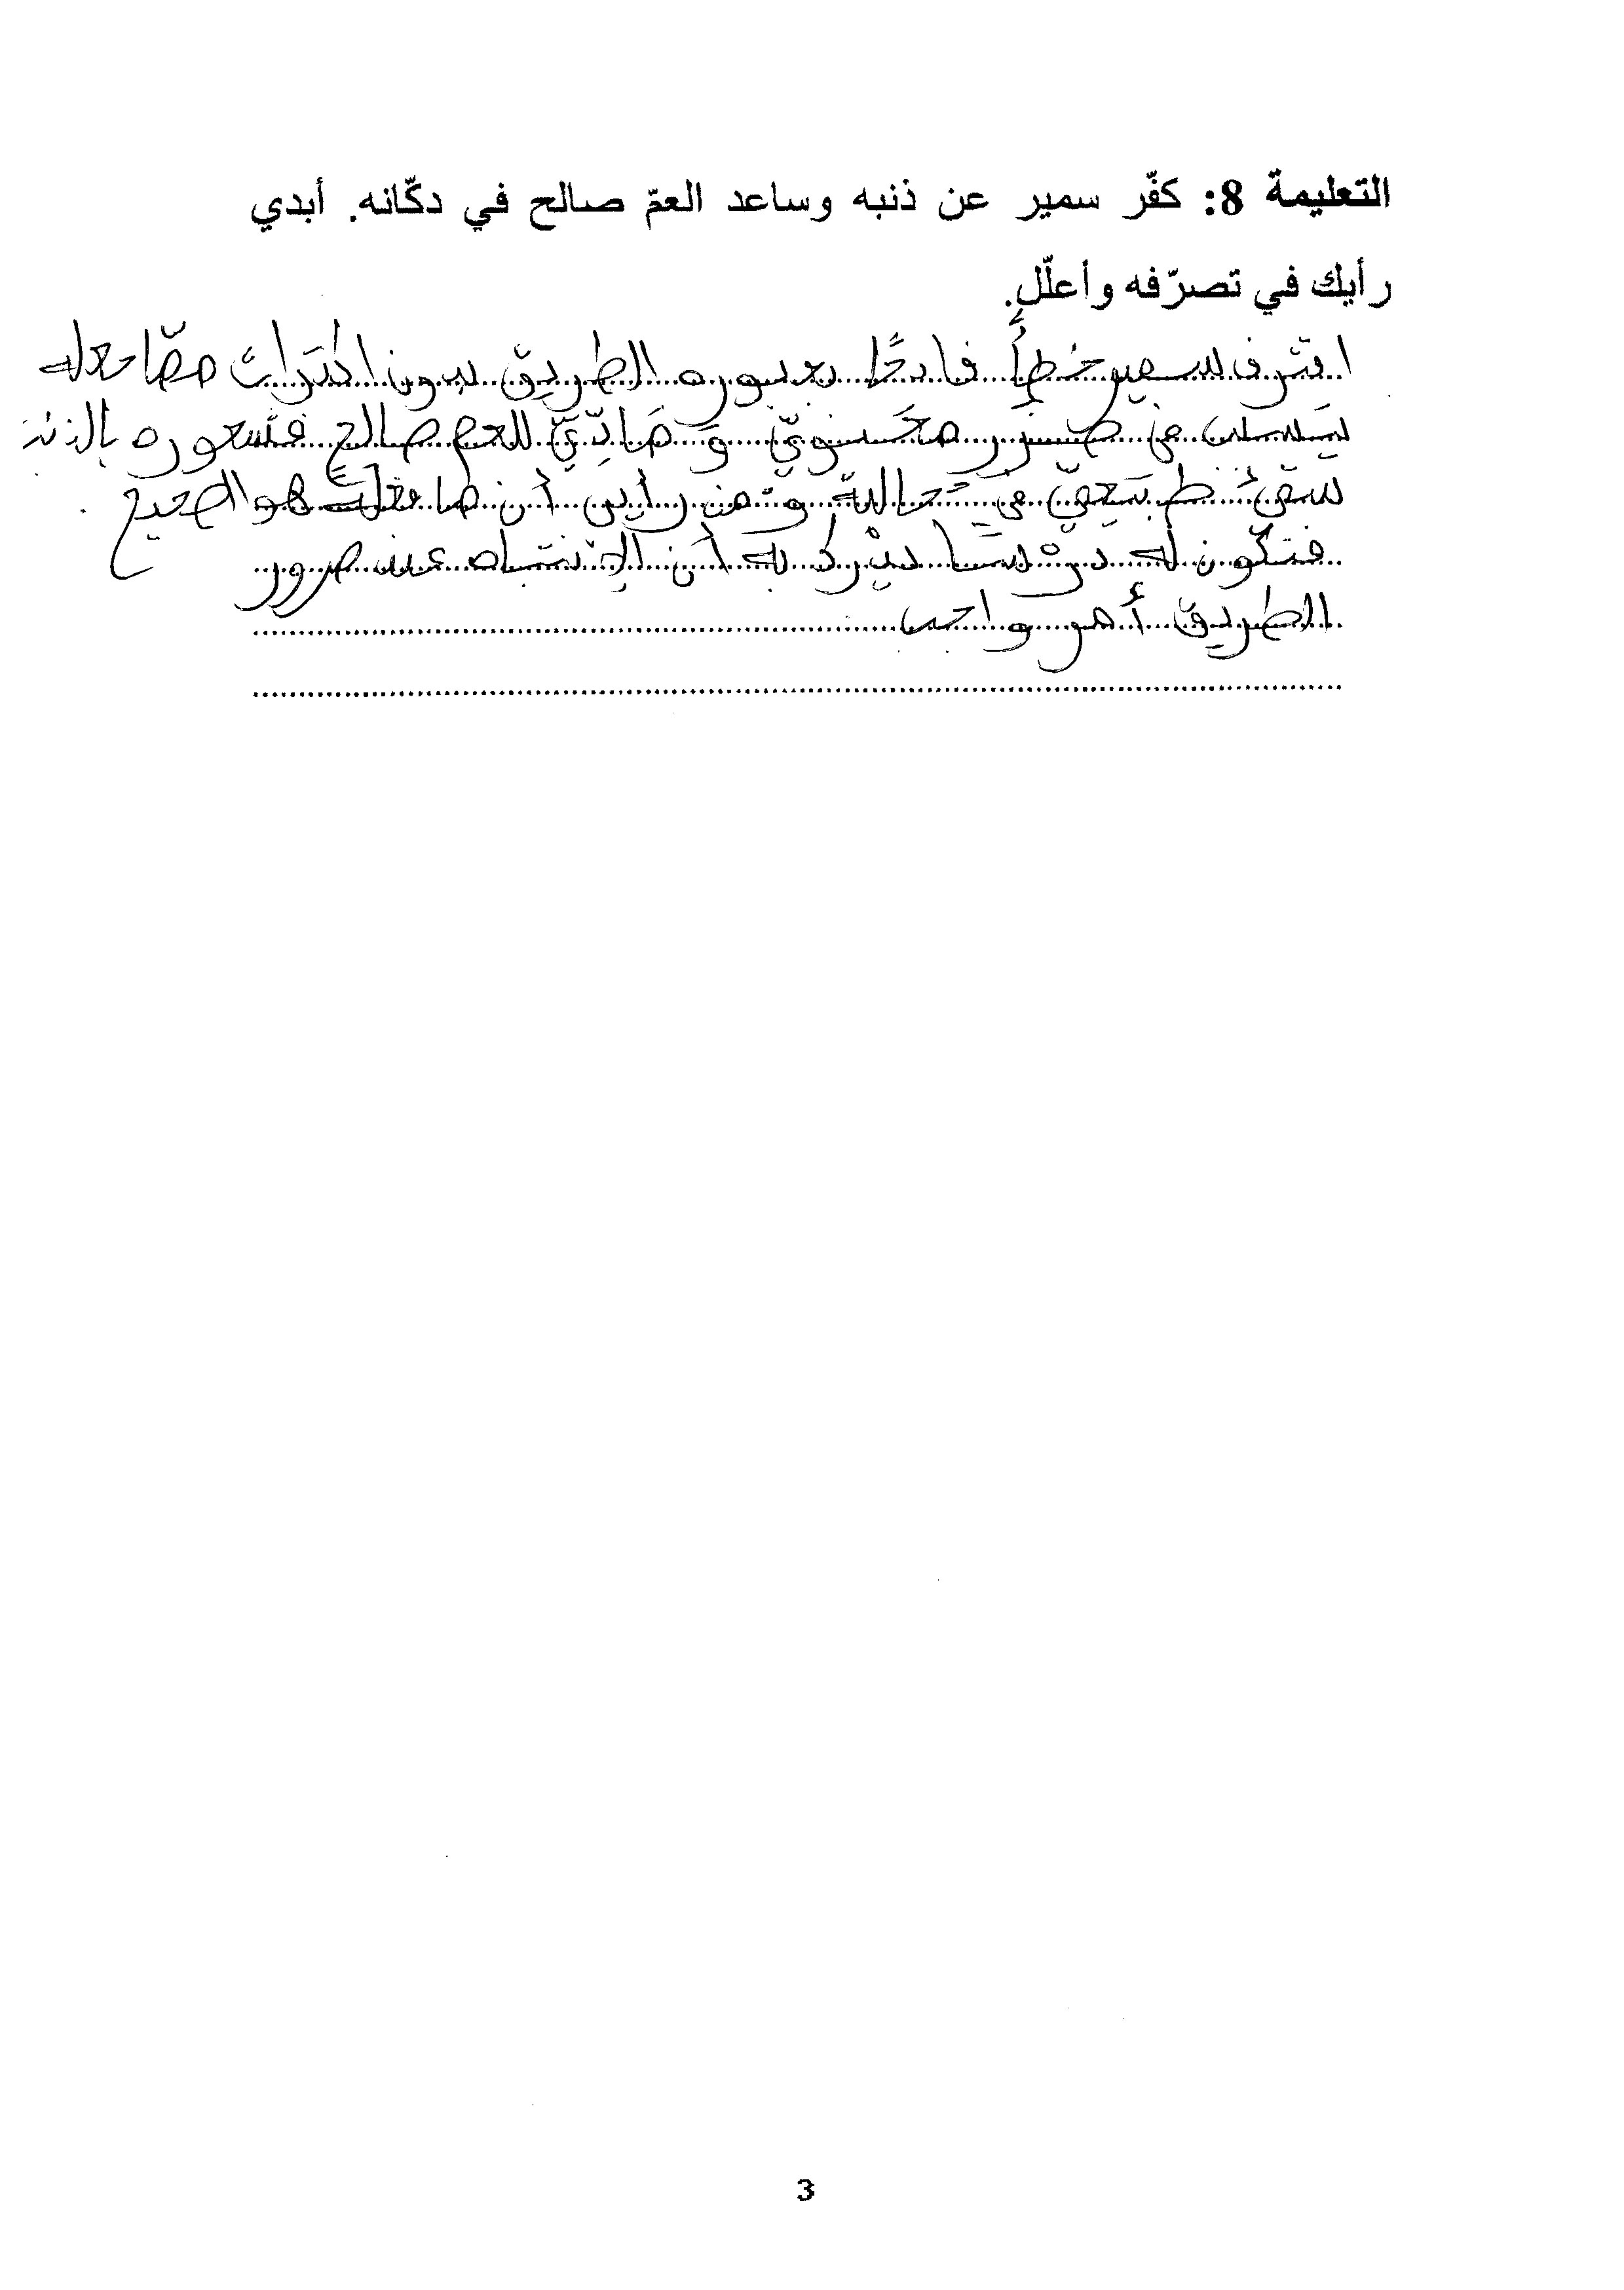 التعليمة 8: كفّر سمير عن ذنبه وساعد العمّ صالح في دكّانه. أبدي
رأيك في تصرّفه وأعلّل.
اقترف سمير خطأً فادحًا بعبوره الطريق بدون اكتراث ممّا جعله
يتسبّب في ضرر معنويّ و مَادِّيّ للعم صالح فشعوره بالذنب
شيئ طبيعيّ في حالة و من رأيي أن ما فعله هو الصحيح
فتكون له درسًا يدرك به أن الإنتباه عند مرور
الطريق أمر واجب
3